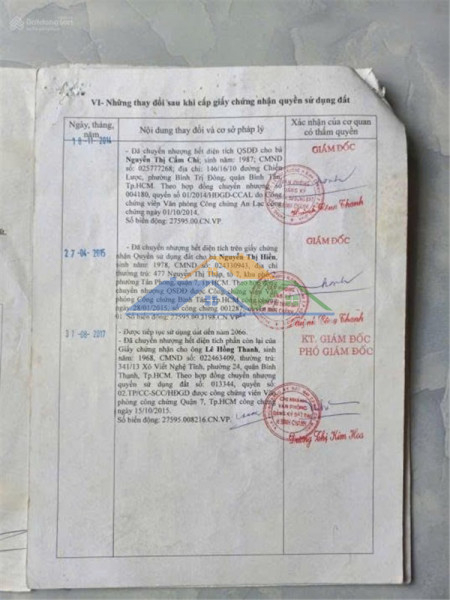 VI- Những thay đổi sau khi cấp giấy chứng nhận quyền sử dụng đất
Ngày, tháng, năm
Nội dung thay đổi và cơ sở pháp lý
Xác nhận của cơ quan có thẩm quyền
18-11-2014
- Đã chuyển nhượng hết diện tích QSDĐ cho bà
Nguyễn Thị Cẩm Chi, sinh năm: 1987; CMND
số: 025777268; địa chỉ: 146/16/10 đường Chiến
Lược, phường Bình Trị Đông, quận Bình Tân,
Tp.HCM. Theo hợp đồng chuyển nhượng số
004180, quyển số 01/2014/HĐGD-CCAL do Công
chứng viên Văn phòng Công chứng An Lạc công
chứng ngày 01/10/2014.
Số biến động: 27595.00.CN.VP.
GIÁM ĐỐC
27-04-2015
- Đã chuyển nhượng hết diện tích trên giấy chứng
nhận Quyền sử dụng đất cho bà Nguyễn Thị Hiền,
sinh năm: 1978, CMND số: 024310943, địa chỉ
thường trú: 477 Nguyễn Thị Thập, tổ 7, khu
phường Tân Phong, quận 7, Tp.HCM. Theo
chuyển nhượng QSDĐ được Công chứng viên
phòng Công chứng Bình Tp.HCM công
28/01/2015, số công chứng 00128
01. Số biến động: 27595.00.3198.CN.VP.
GIÁM ĐỐC
31-08-2017
- Được tiếp tục sử dụng đất đến năm 2066.
- Đã chuyển nhượng hết diện tích phần còn lại của
Giấy chứng nhận cho ông Lê Hồng Thanh, sinh
năm: 1968, CMND số: 022463409, thường trú:
341/13 Xô Viết Nghệ Tĩnh, phường 24, quận Bình
Thạnh, Tp.HCM. Theo hợp đồng chuyển nhượng
quyền sử dụng đất số: 013344, quyển số:
02.TP/CC-SCC/HĐGD được công chứng viên Văn
phòng công chứng Quận 7, Tp.HCM công chứng
ngày 15/10/2015.
Số biến động: 27595.008216.CN.VP.
KT. GIÁM ĐỐC
PHÓ GIÁM ĐỐC
CHI NHÁNH
VĂN PHÒNG
ĐĂNG KÝ ĐẤT ĐAI
Dương Thị Kim Hoa